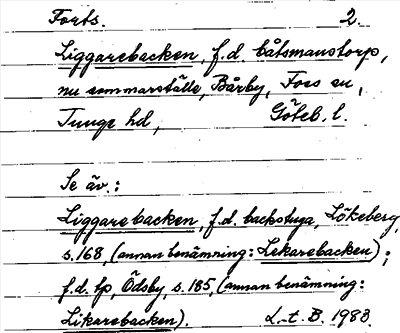 Forts. 2.
Liggarebacken, f.d. båtsmanstorp,
nu sommarställe, Bärby, Foss sn,
Tunge hd, Göteb. l.
Se äv.:
Liggarebacken, f.d. backstuga, Lökeberg,
s. 168, (annan benämning: Lekarebacken);
f.d. lp, Ödsby, s. 185, (annan benämning:
Likarebacken). L.-t. B. 1983